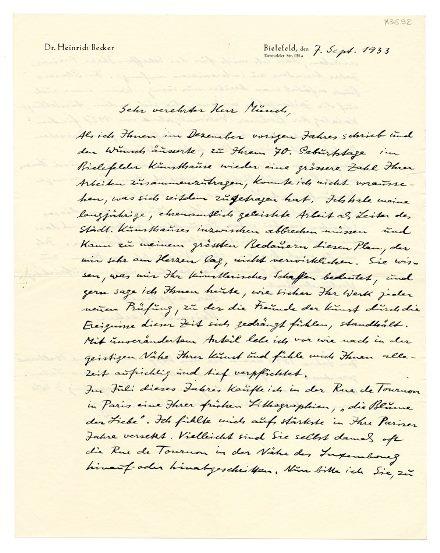 K3592
Dr. Heinrich Becker
Bielefeld, den 7. Sept. 1933
Sehr verehrter Herr Munch,
Als ich Ihnen im Dezember vorigen Jahres schrieb und
den Wunsch äusserte, zu Ihrem 70. Geburtstage im
Bielefelder Kunsthause wieder eine grössere Zahl Ihrer
Arbeiten zusammenzutragen, konnte ich nicht vorausse-
hen, was sich seitdem zugetragen hat. Ich habe meine
langjährige, ehrenamtlich geleistete Arbeit als Leiter des
Städt. Kunsthauses inzwischen abbrechen müssen und
kann zu meinem grössten Bedauern diesen Plan, der
mir sehr am Herzen lag, nicht verwirklichen. Sie wis-
sen, was mir Ihr künstlerisches Schaffen bedeutet, und
gern sage ich Ihnen heute, wie sicher Ihr Werk jeder
neuen Prüfung, zu der die Freunde der Kunst durch die
Ereignisse dieser Zeit sich gedrängt fühlen, standhält.
Mit unverändertem Anteil lebe ich vor wie nach in der
geistigen Nähe Ihrer Kunst und fühle mich Ihnen alle-
zeit aufrichtig und tief verpflichtet.
Im Juli dieses Jahres kaufte ich in der Rue de Tournon
in Paris eine Ihrer frühen Lithographien, „die Blume
der Liebe". Ich fühlte mich aufs stärkste in Ihre Pariser
Jahre versetzt. Vielleicht sind Sie selbst damals oft
die Rue de Tournon in der Nähe des Luxembourg
hinauf oder hinabgeschritten. Nun bitte ich Sie, zu